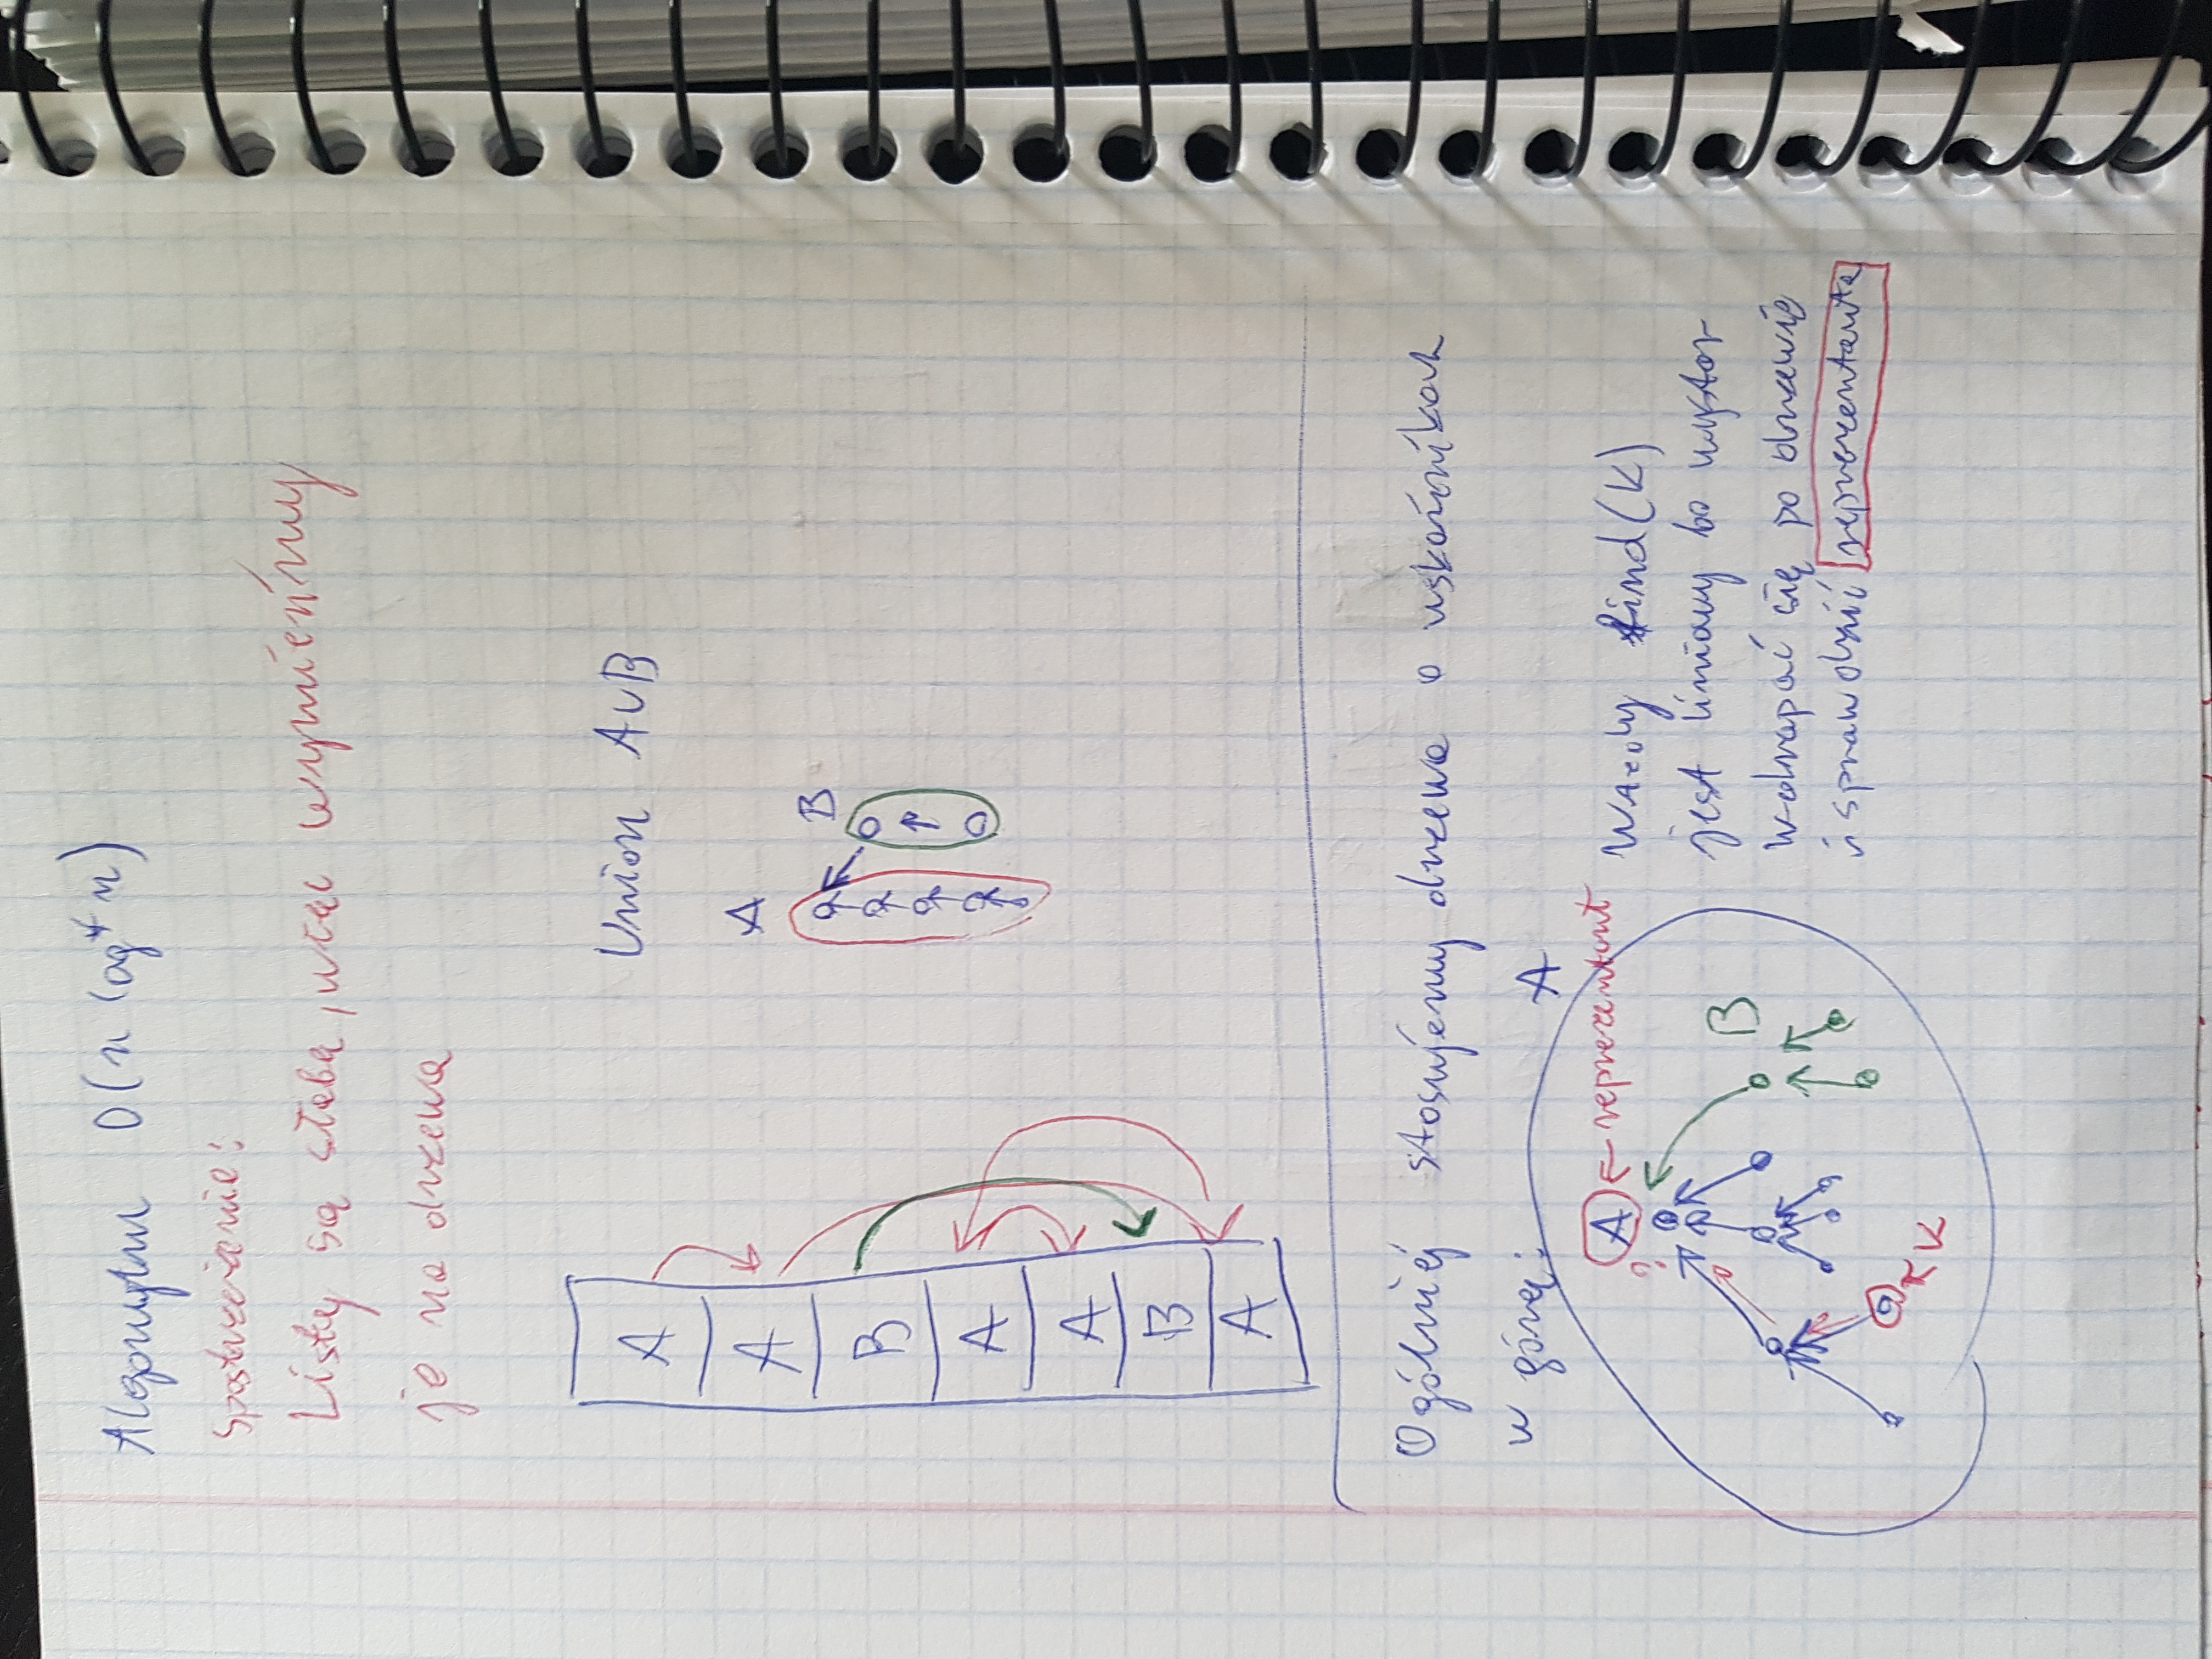 Algorytm O(n log* n)
Spostrzeżenie:
Listy są słabe, więc wymieńmy
je na drzewa
A
A
B
A
A
B
A
Union A∪B
A
B
Ogólniej stosujemy drzewa o wskaźnikach
w górę:
A
A ← reprezentant
?
B
K
Wtedy find(K)
jest liniowy bo wystar
wdrapać się po drzewie
i sprawdzić reprezentanta